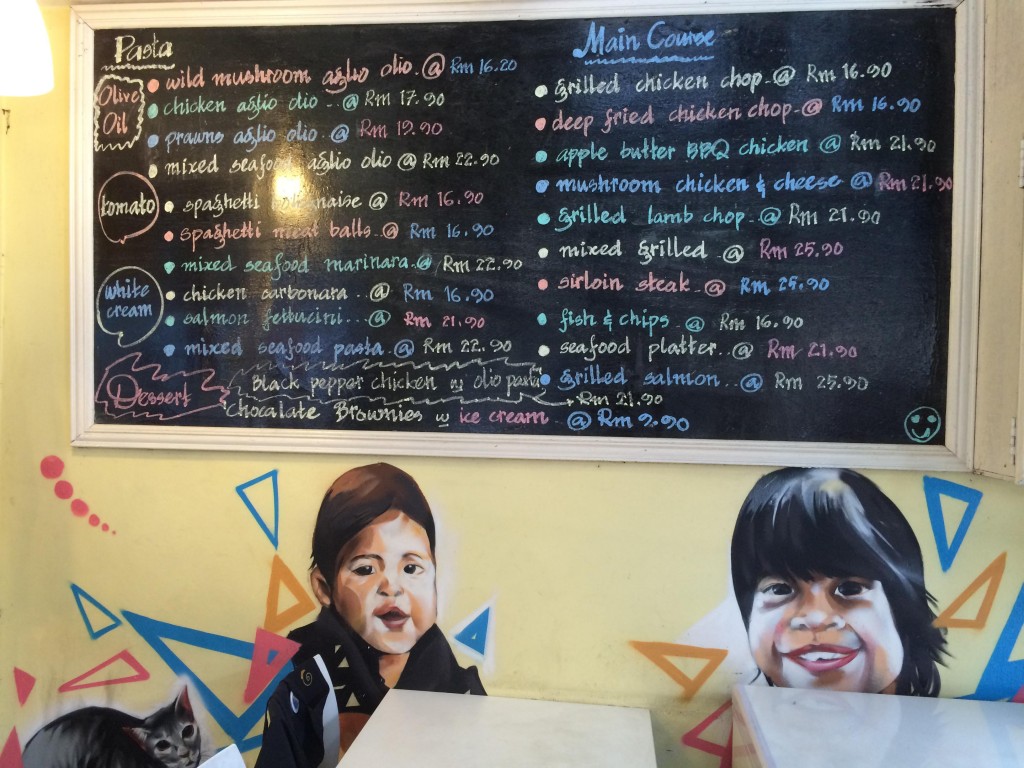 Pasta
Olive Oil
wild mushroom aglio olio.@ Rm 16.20
chicken aglio olio..@ Rm 17.90
prawns aglio olio.@ Rm 19.90
mixed seafood aglio olio @ Rm 22.90
tomato
spaghetti @ Rm 16.90
spaghetti meat balls..@ Rm 16.90
mixed seafood marinara.@ Rm 22.90
white cream
chicken carbonara..@ Rm 16.90
salmon fettucini...@ Rm 21.90
mixed seafood pasta.@ Rm 22.90
Black pepper chicken w olio pasta
Rm 21.90
Dessert
Chocolate Brownies w ice cream..@ Rm 9.90
Main Course
grilled chicken chop.@ Rm 16.90
deep fried chicken chop-@ Rm 16.90
apple butter BBQ chicken @ Rm 21.90
mushroom chicken & cheese @ Rm 21.90
grilled lamb chop..@ Rm 21.90
mixed grilled @ Rm 25.90
sirloin steak..@ Rm 25.90
fish & chips @ Rm 16.90
seafood platter..@ Rm 21.90
grilled salmon..@ Rm 25.90